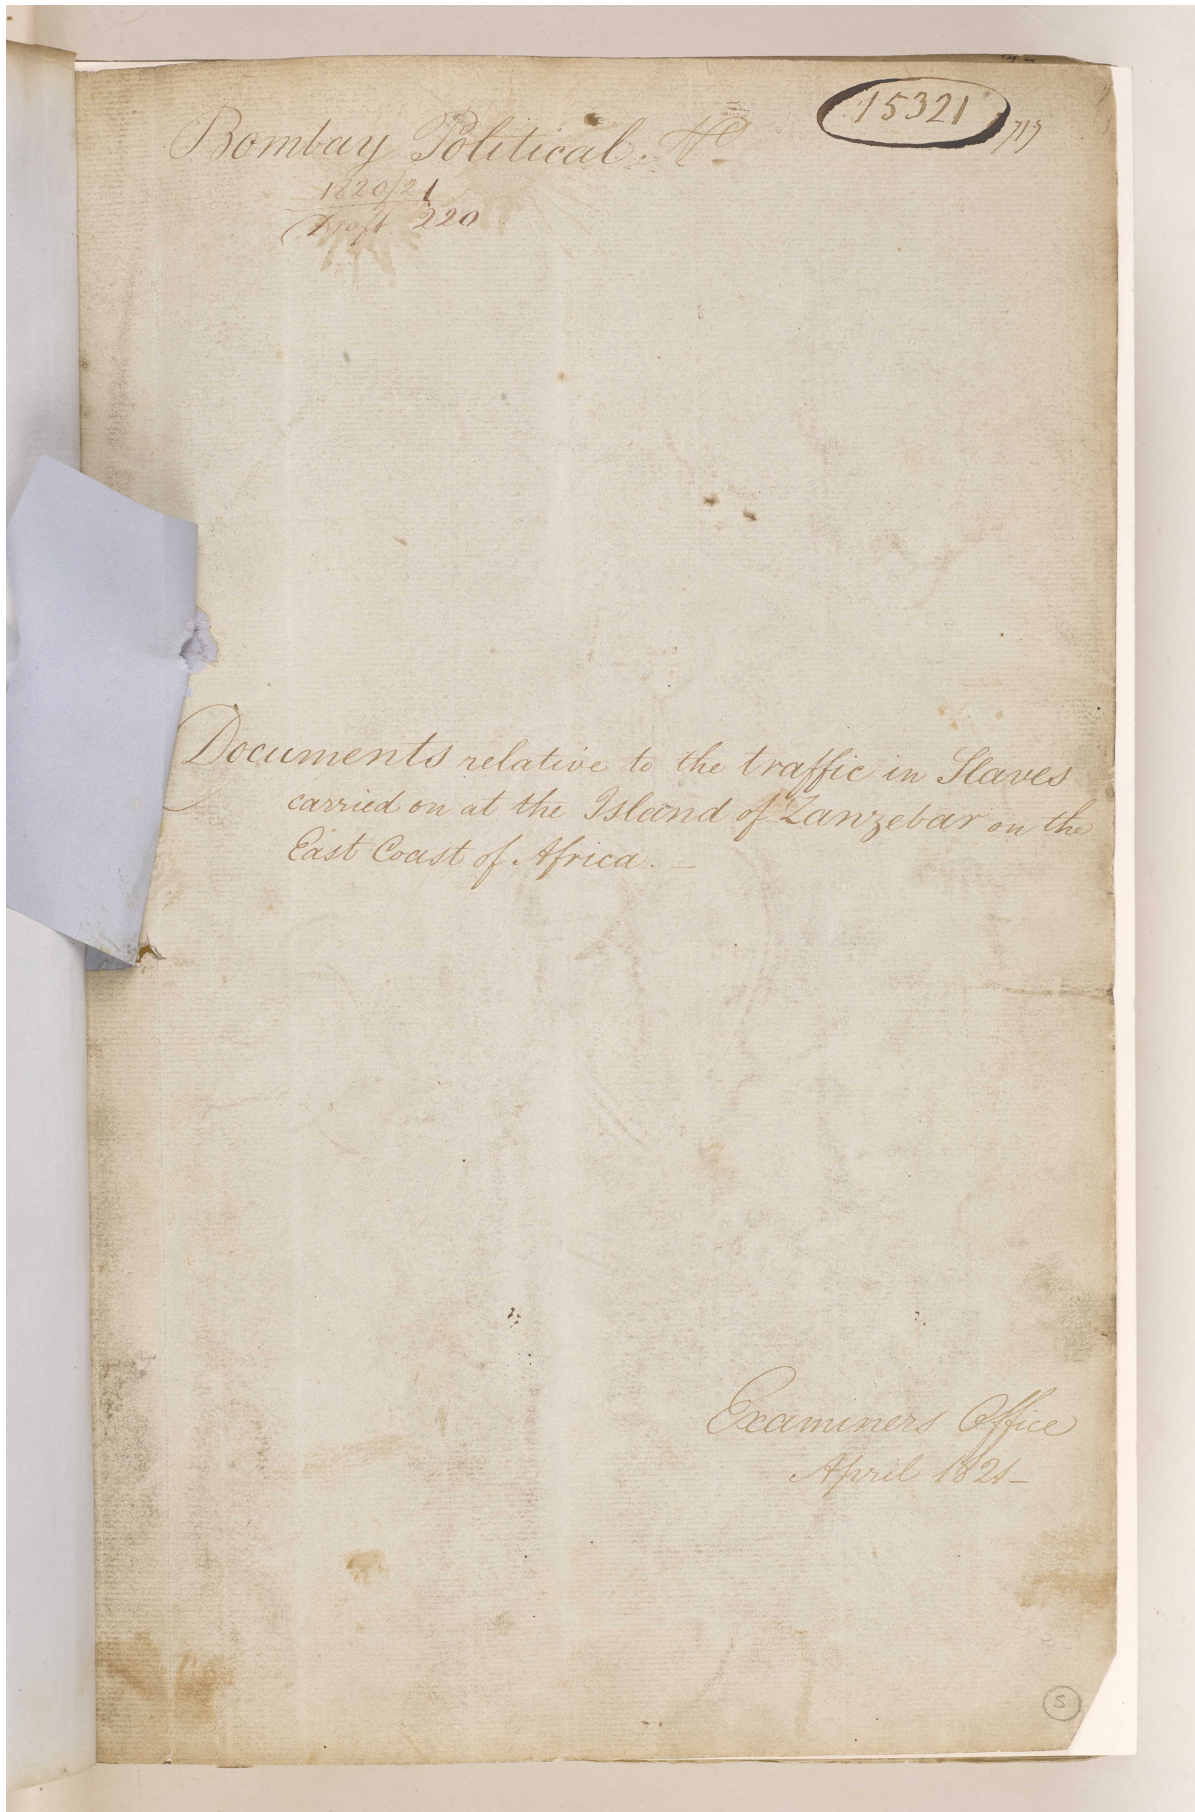 15321
717
Bombay Political
1820/21
Draft 220
Documents relative to the traffic in Slaves
carried on at the Island of Zanzebar on the
East Coast of Africa. —
Examiners Office
April 1821 —
5